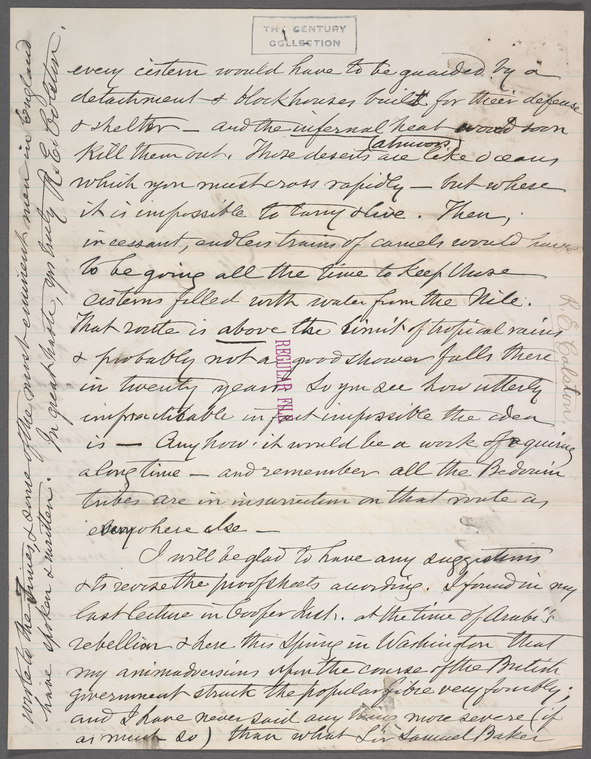 THE CENTURY
COLLECTION
every cistern would have to be guarded by a
detachment & blockhouses built for their defense
& shelter — and the infernal heat would soon
Kill them out. Those deserts are (almost) like oceans
which you must cross rapidly — but where
it is impossible to tarry & live. Then,
incessant, endless trains of camels would have
to be going all the time to keep those
cisterns filled with water from the Nile.
That route is above the limit of tropical rains
& probably not a good shower falls there
in twenty years. So you see how utterly
impracticable in, but impossible the idea
is — Anyhow it would be a work requiring
a long time — and remember all the Bedouin
tribes are in insurrection on that route as
everywhere else —
I will be glad to have any suggestions
& to revise the proofsheets according. I found in my
last lecture in Cooper Inst. at the time of Arabi's
rebellion & here this Spring in Washington that
my animadversions upon the course of the British
government struck the popular fibre very forcibly;
and I have never said anything more severe (if
as much so) than what Sir Samuel Baker
wrote to the Times & some of the most eminent men in England
have spoken & written. In great haste, yrs truly R. E. Colston.
REGULAR FILE
R. E. Colston